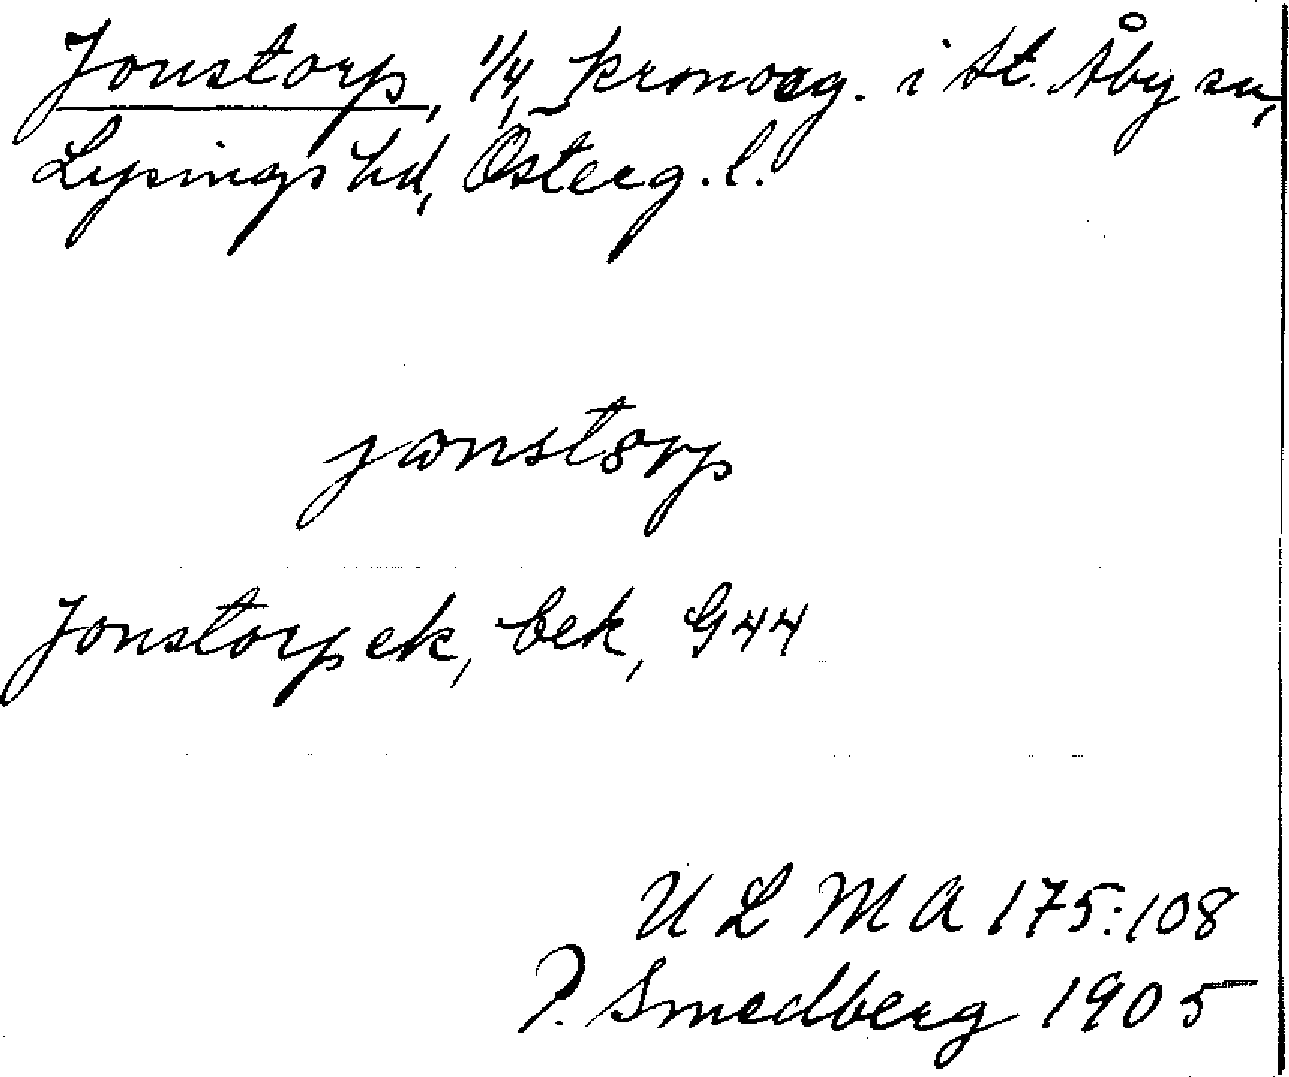 Jonstorp, 1/4, kronoeg. i St. Åby sn,
Lysings hd, Österg. l.
jωnstorp
Jonstorp ek, bek, G44
U L M A 175:108
P. Smedberg 1905